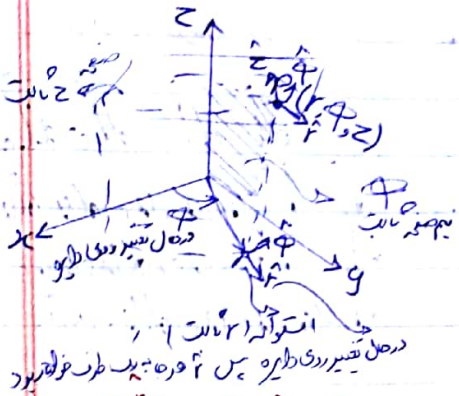 z
صفحه
z ثابت
ẑ φ̂
(r, φ, z)
r̂
φ
نیم صفحه ثابت
x
φ
درحال تغییر روی دایره
φ̂
r̂
y
استوانه r ثابت
درحال تغییر روی دایره پس r̂ هر به یک طرف خواهد بود